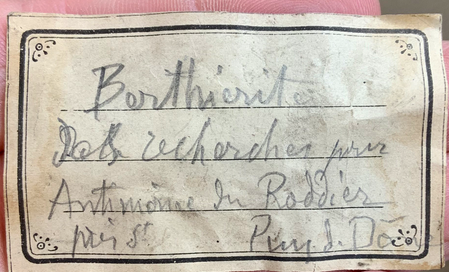 Berthierite
Recherches pour
Antimoine du Roddier
près St Puy d. Dôme